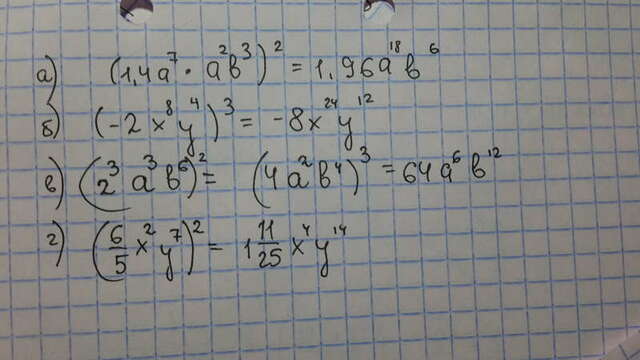 а) (1,4a⁷ · a²b³)² = 1,96a¹⁸b⁶
б) (-2x⁸y⁴)³ = -8x²⁴y¹²
в) (2³a³b⁶)² = (4a²b⁴)³ = 64a⁶b¹²
г) (6/5 x²y⁷)² = 1 11/25 x⁴y¹⁴